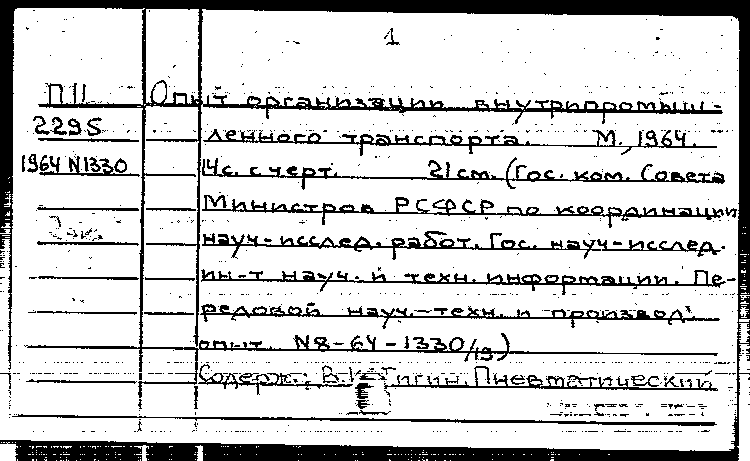 1
П11 Опыт организации внутрипромыш-
2295 ленного транспорта. М., 1964.
1964 N1330 14с. с черт. 21 см. (Гос. ком. Совета
Министров РСФСР по координации
науч-исслед. работ. Гос. науч-исслед.
ин-т науч. и техн. информации. Пе-
редовой науч.-техн. и производ.
опыт. N8-64-1330/19.)
Содерж.: Пневматический